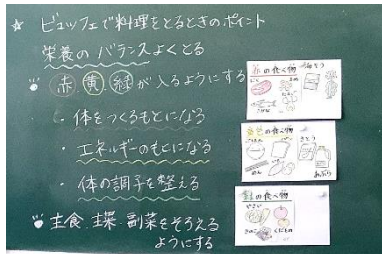 ☆ ビュッフェで料理をとるときのポイント
栄養のバランスよくとる
赤.黄.緑が入るようにする
・体をつくるもとになる
・エネルギーのもとになる
・体の調子を整える
主食 主菜.副菜をそろえる
ようにする
赤の食べ物
黄色の食べ物
さとう
あぶら
緑の食べ物
やさい
きのこ
くだもの